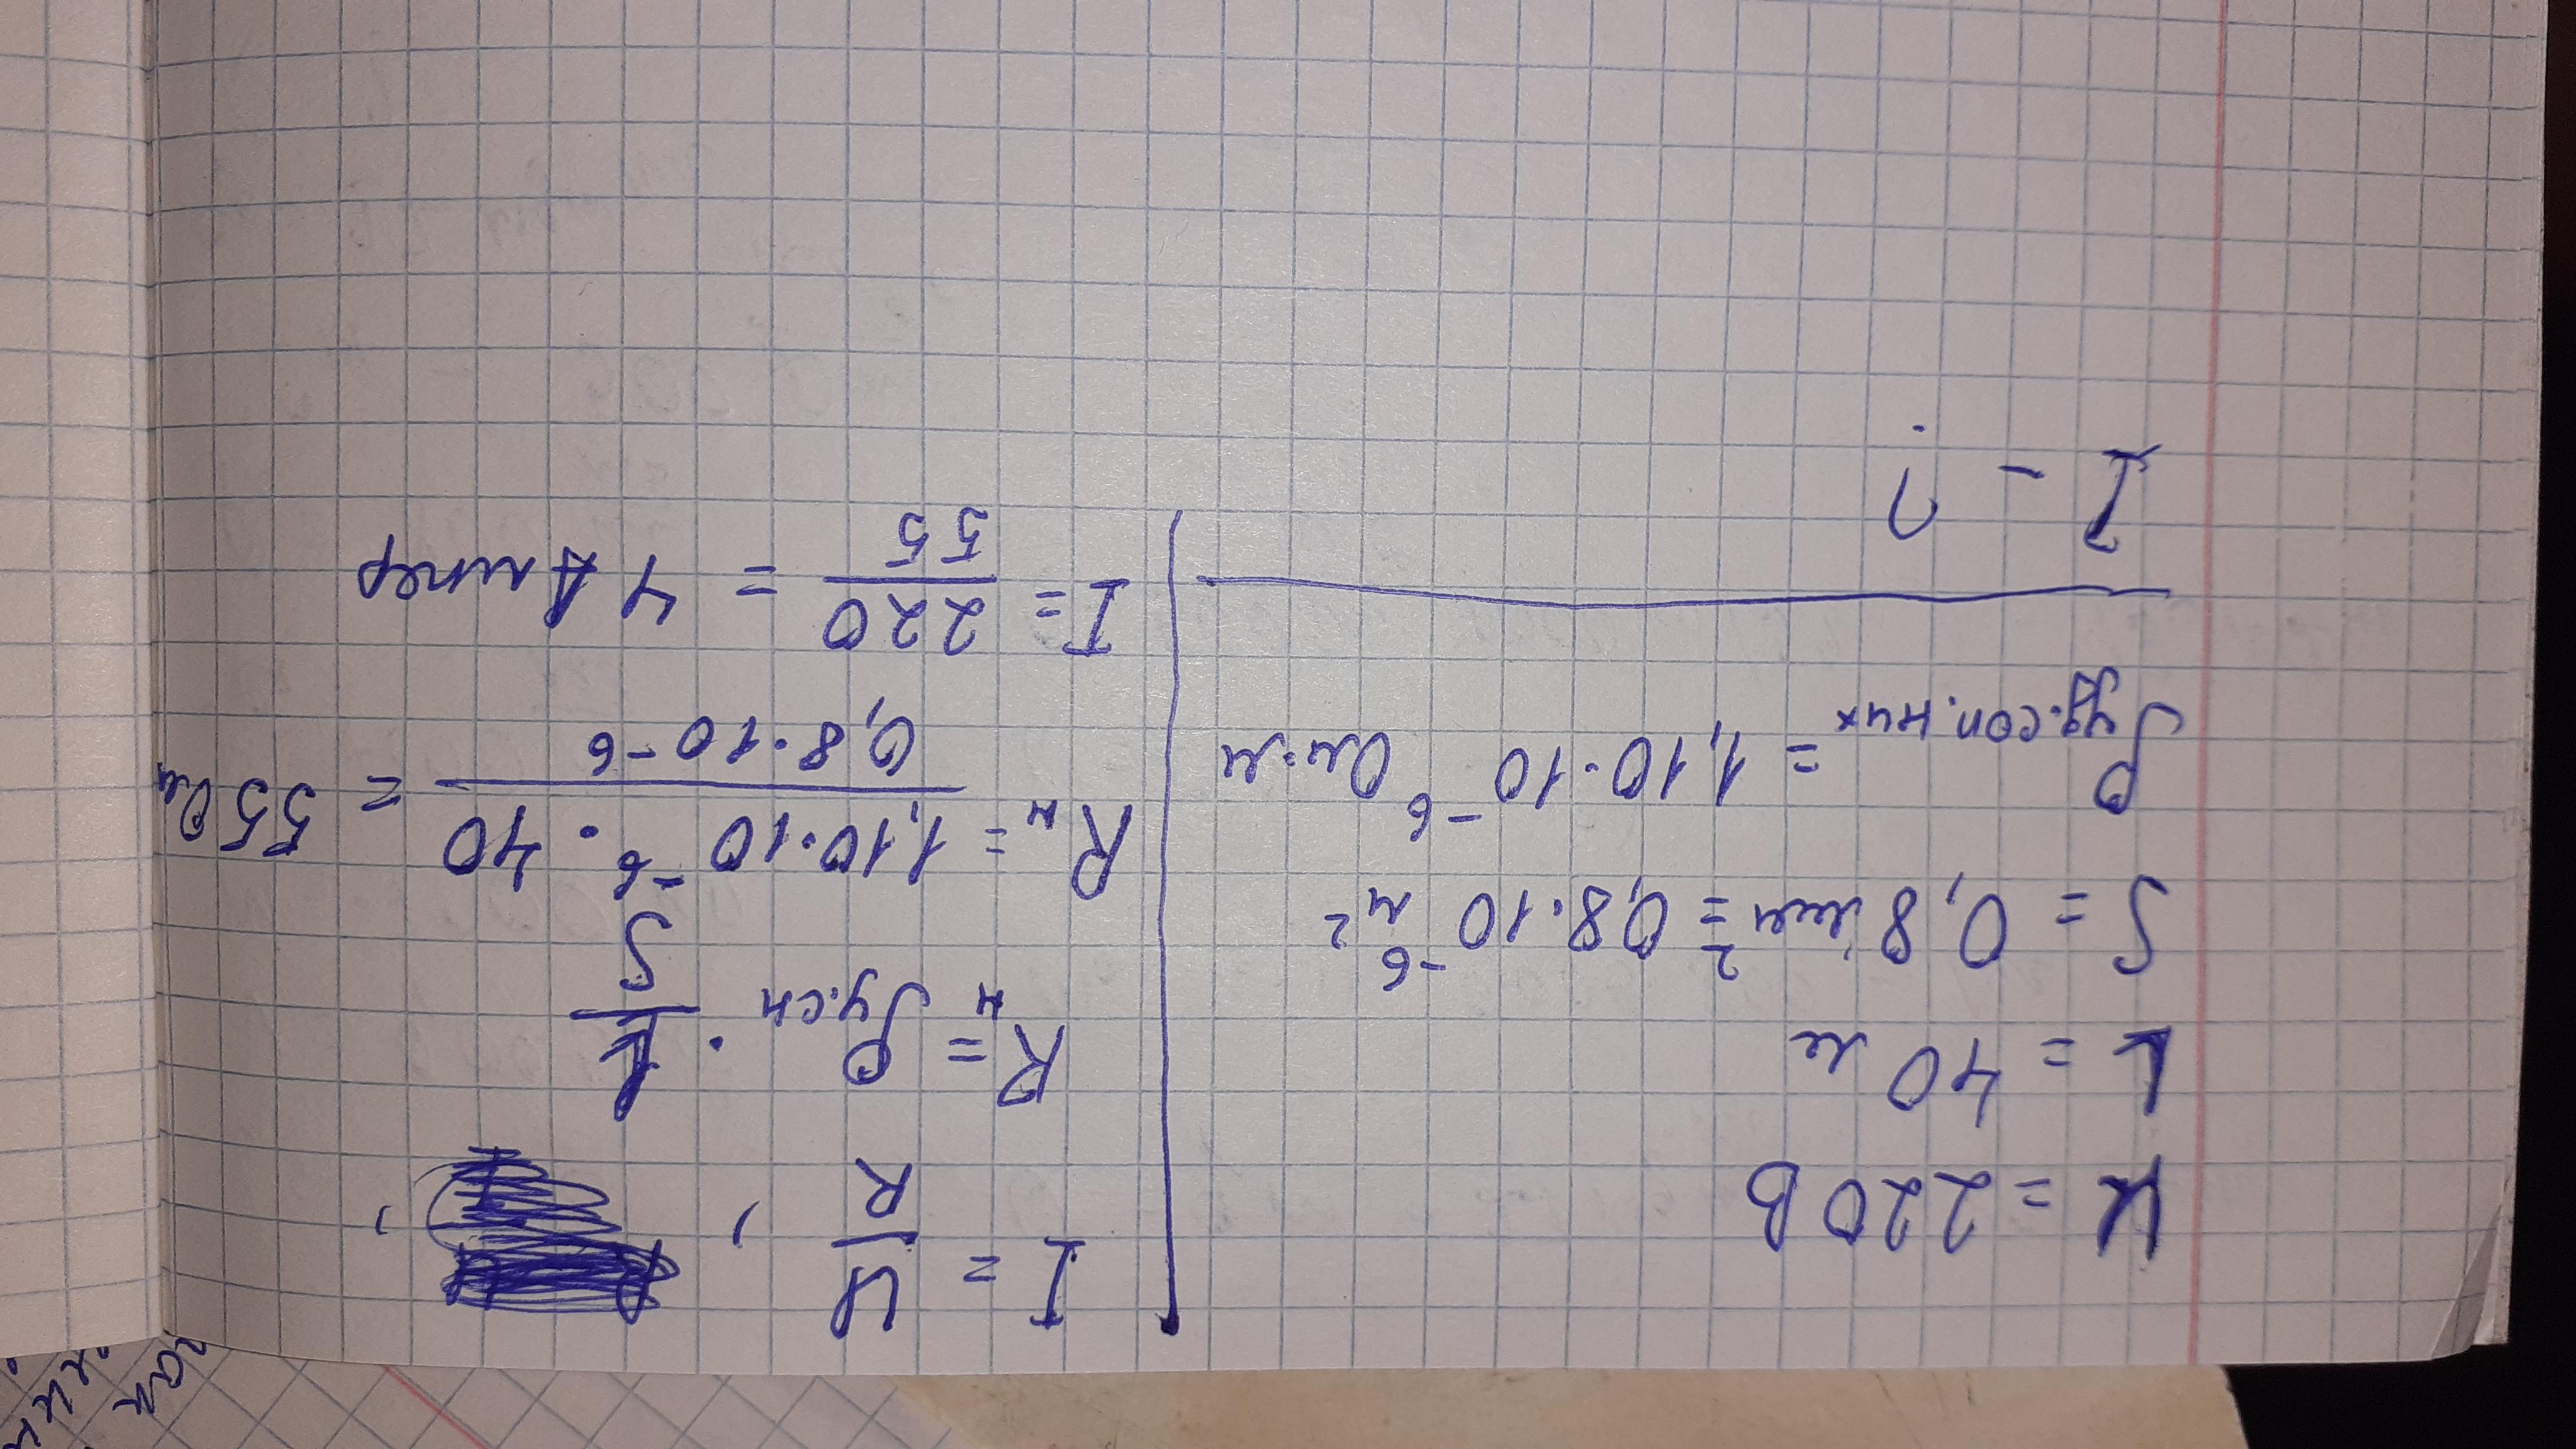 U = 220В
L = 40 м
S = 0,8 мм² = 0,8·10⁻⁶ м²
ρ уд.соп.них = 1,10·10⁻⁶ Ом·м
I - ?
I = U/R ,
Rн = ρу.сн · L/S
Rн = 1,10·10⁻⁶ · 40 / 0,8·10⁻⁶ = 55 Ом
I = 220/55 = 4 Ампер